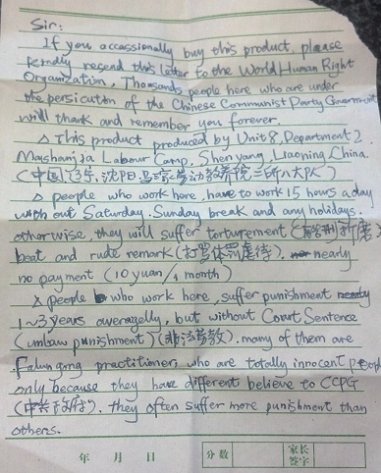 Sir:
If you occassionally buy this product, please
kindly resend this letter to the World Human Right
Organization. Thousands people here who are under
the persicution of the Chinese Communist Party Government
will thank and remember you forever.
This product produced by Unit 8, Department 2
Mashanjia Labour Camp, Shen yang, Liaoning, China.
(中国, 辽宁, 沈阳, 马三家劳动教养院二所八大队)
people who work here, have to work 15 hours a day
with out Saturday, Sunday break and any holidays.
otherwise, they will suffer torturement (折磨)
beat and rude remark (打骂体罚虐待). nearly
no payment (10 yuan/1 month)
people who work here, suffer punishment
1~3 years averagelly, but without Court Sentence
(unlaw punishment) (非法劳教). many of them are
Falun gong practitioner, who are totally innocent people
only because they have different believe to CCPG
(中共政府). they often suffer more punishment than
others.
年 月 日 分数 家长签字